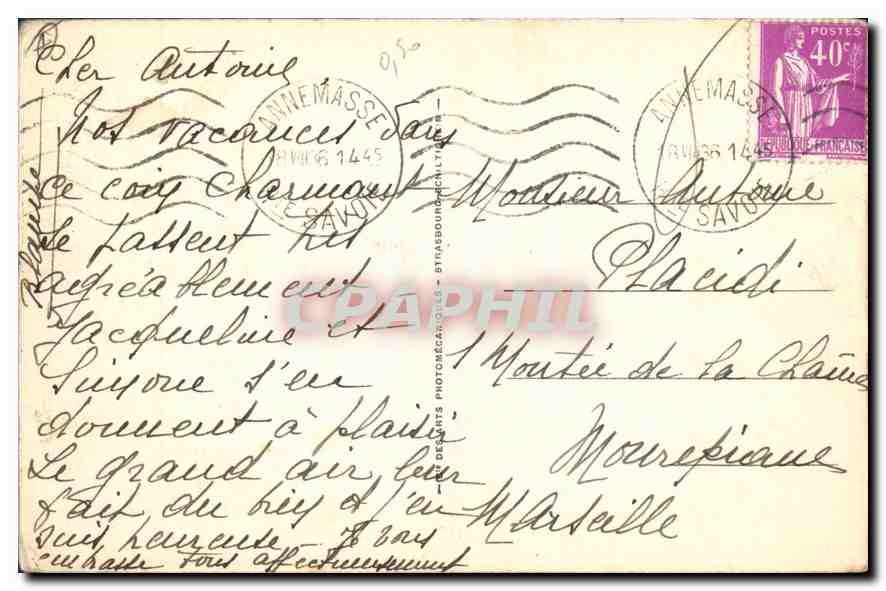 Cher Antoine,
Nos vacances dans
ce coin charmant
se passent très
agréablement
Jacqueline et
Simone s'en
donnent à plaisir
Le grand air leur
fait du bien et j'en
suis heureuse - Je vous
embrasse tous affectueusement
0,50
ANNEMASSE
18 VII 36 14 45
HTE SAVOIE
ANNEMASSE
18 VII 36 14 45
HTE SAVOIE
POSTES
40c
REPUBLIQUE FRANÇAISE
Monsieur Antoine
Placidi
1 Montée de la Chaîne
Mourepiane
Marseille
CIE DES ARTS PHOTOMÉCANIQUES - STRASBOURG-SCHILTIGHEIM
CPAPHIL